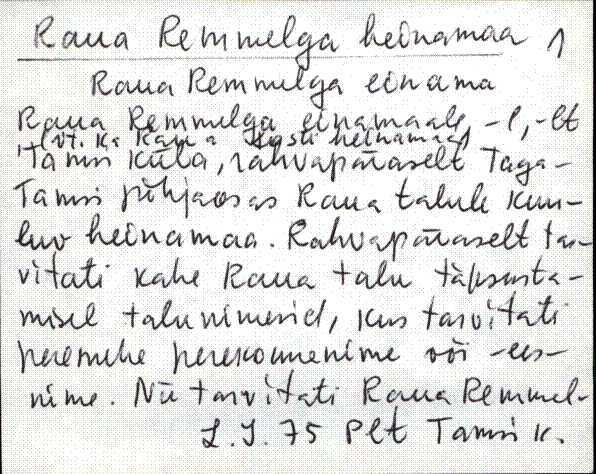 Raua Remmelga heinamaa 1
Raua Remmelga einama
Raua Remmelga einamaale, -l, -lt
(vt. ka Raua Kusti heinamaa)
Tamsi küla, rahvapäraselt Taga-
Tamsi põhjaosas Raua talule kuu-
luv heinamaa. Rahvapäraselt tar-
vitati kahe Raua talu täpsusta-
misel talunimesid, kus tarvitati
peremehe perekonnanime või -ees-
nime. Nii tarvitati Raua Remmel-
L.J. 75 Plt Tamsi k.